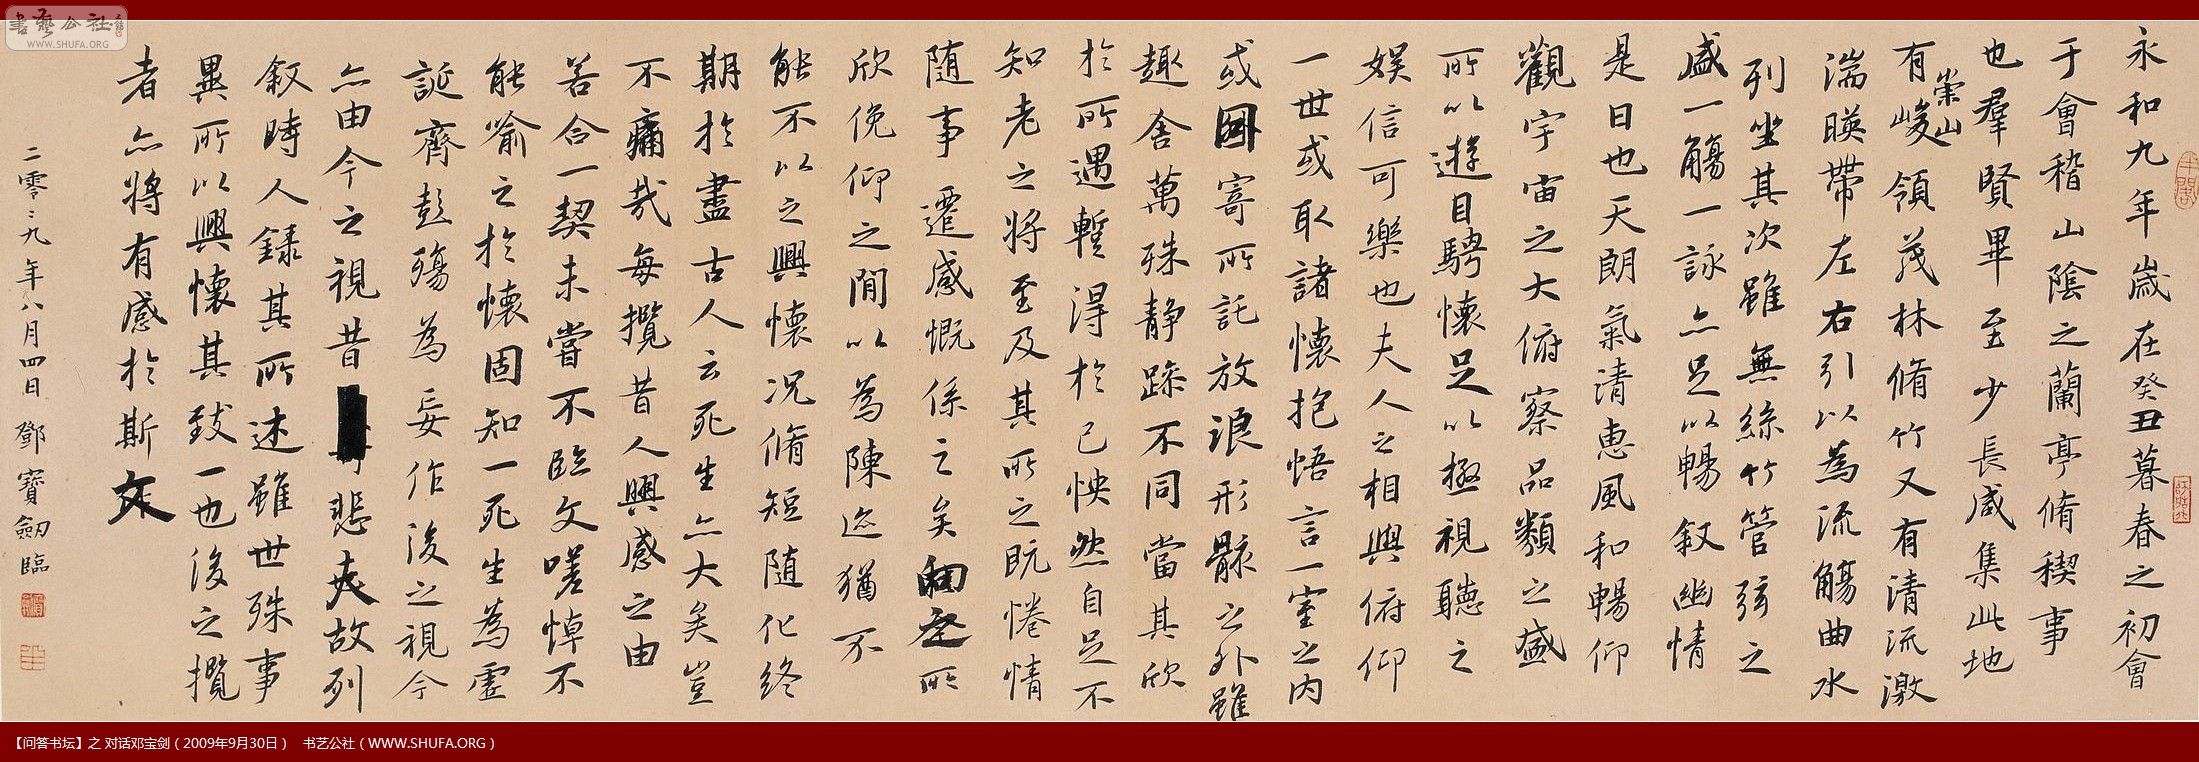 永和九年歲在癸丑暮春之初會
于會稽山陰之蘭亭脩稧事
也羣賢畢至少長咸集此地
有崇山峻領茂林脩竹又有清流激
湍暎帶左右引以為流觴曲水
列坐其次雖無絲竹管弦之
盛一觴一詠亦足以暢叙幽情
是日也天朗氣清惠風和暢仰
觀宇宙之大俯察品類之盛
所以遊目騁懷足以極視聽之
娛信可樂也夫人之相與俯仰
一世或取諸懷抱悟言一室之內
或因寄所託放浪形骸之外雖
趣舍萬殊静躁不同當其欣
於所遇蹔得於己怏然自足不
知老之將至及其所之既惓情
随事遷感慨係之矣向之所
欣俛仰之閒以為陳迹猶不
能不以之興懷况脩短随化終
期於盡古人云死生亦大矣豈
不痛哉每攬昔人興感之由
若合一契未嘗不臨文嗟悼不
能喻之於懷固知一死生為虛
誕齊彭殤為妄作後之視今
亦由今之視昔悲夫故列
叙時人錄其所述雖世殊事
異所以興懷其致一也後之攬
者亦將有感於斯文
二零零九年八月四日 鄧寶劍臨
書藝公社
WWW.SHUFA.ORG
【问答书坛】之 对话邓宝剑（2009年9月30日） 书艺公社（WWW.SHUFA.ORG）